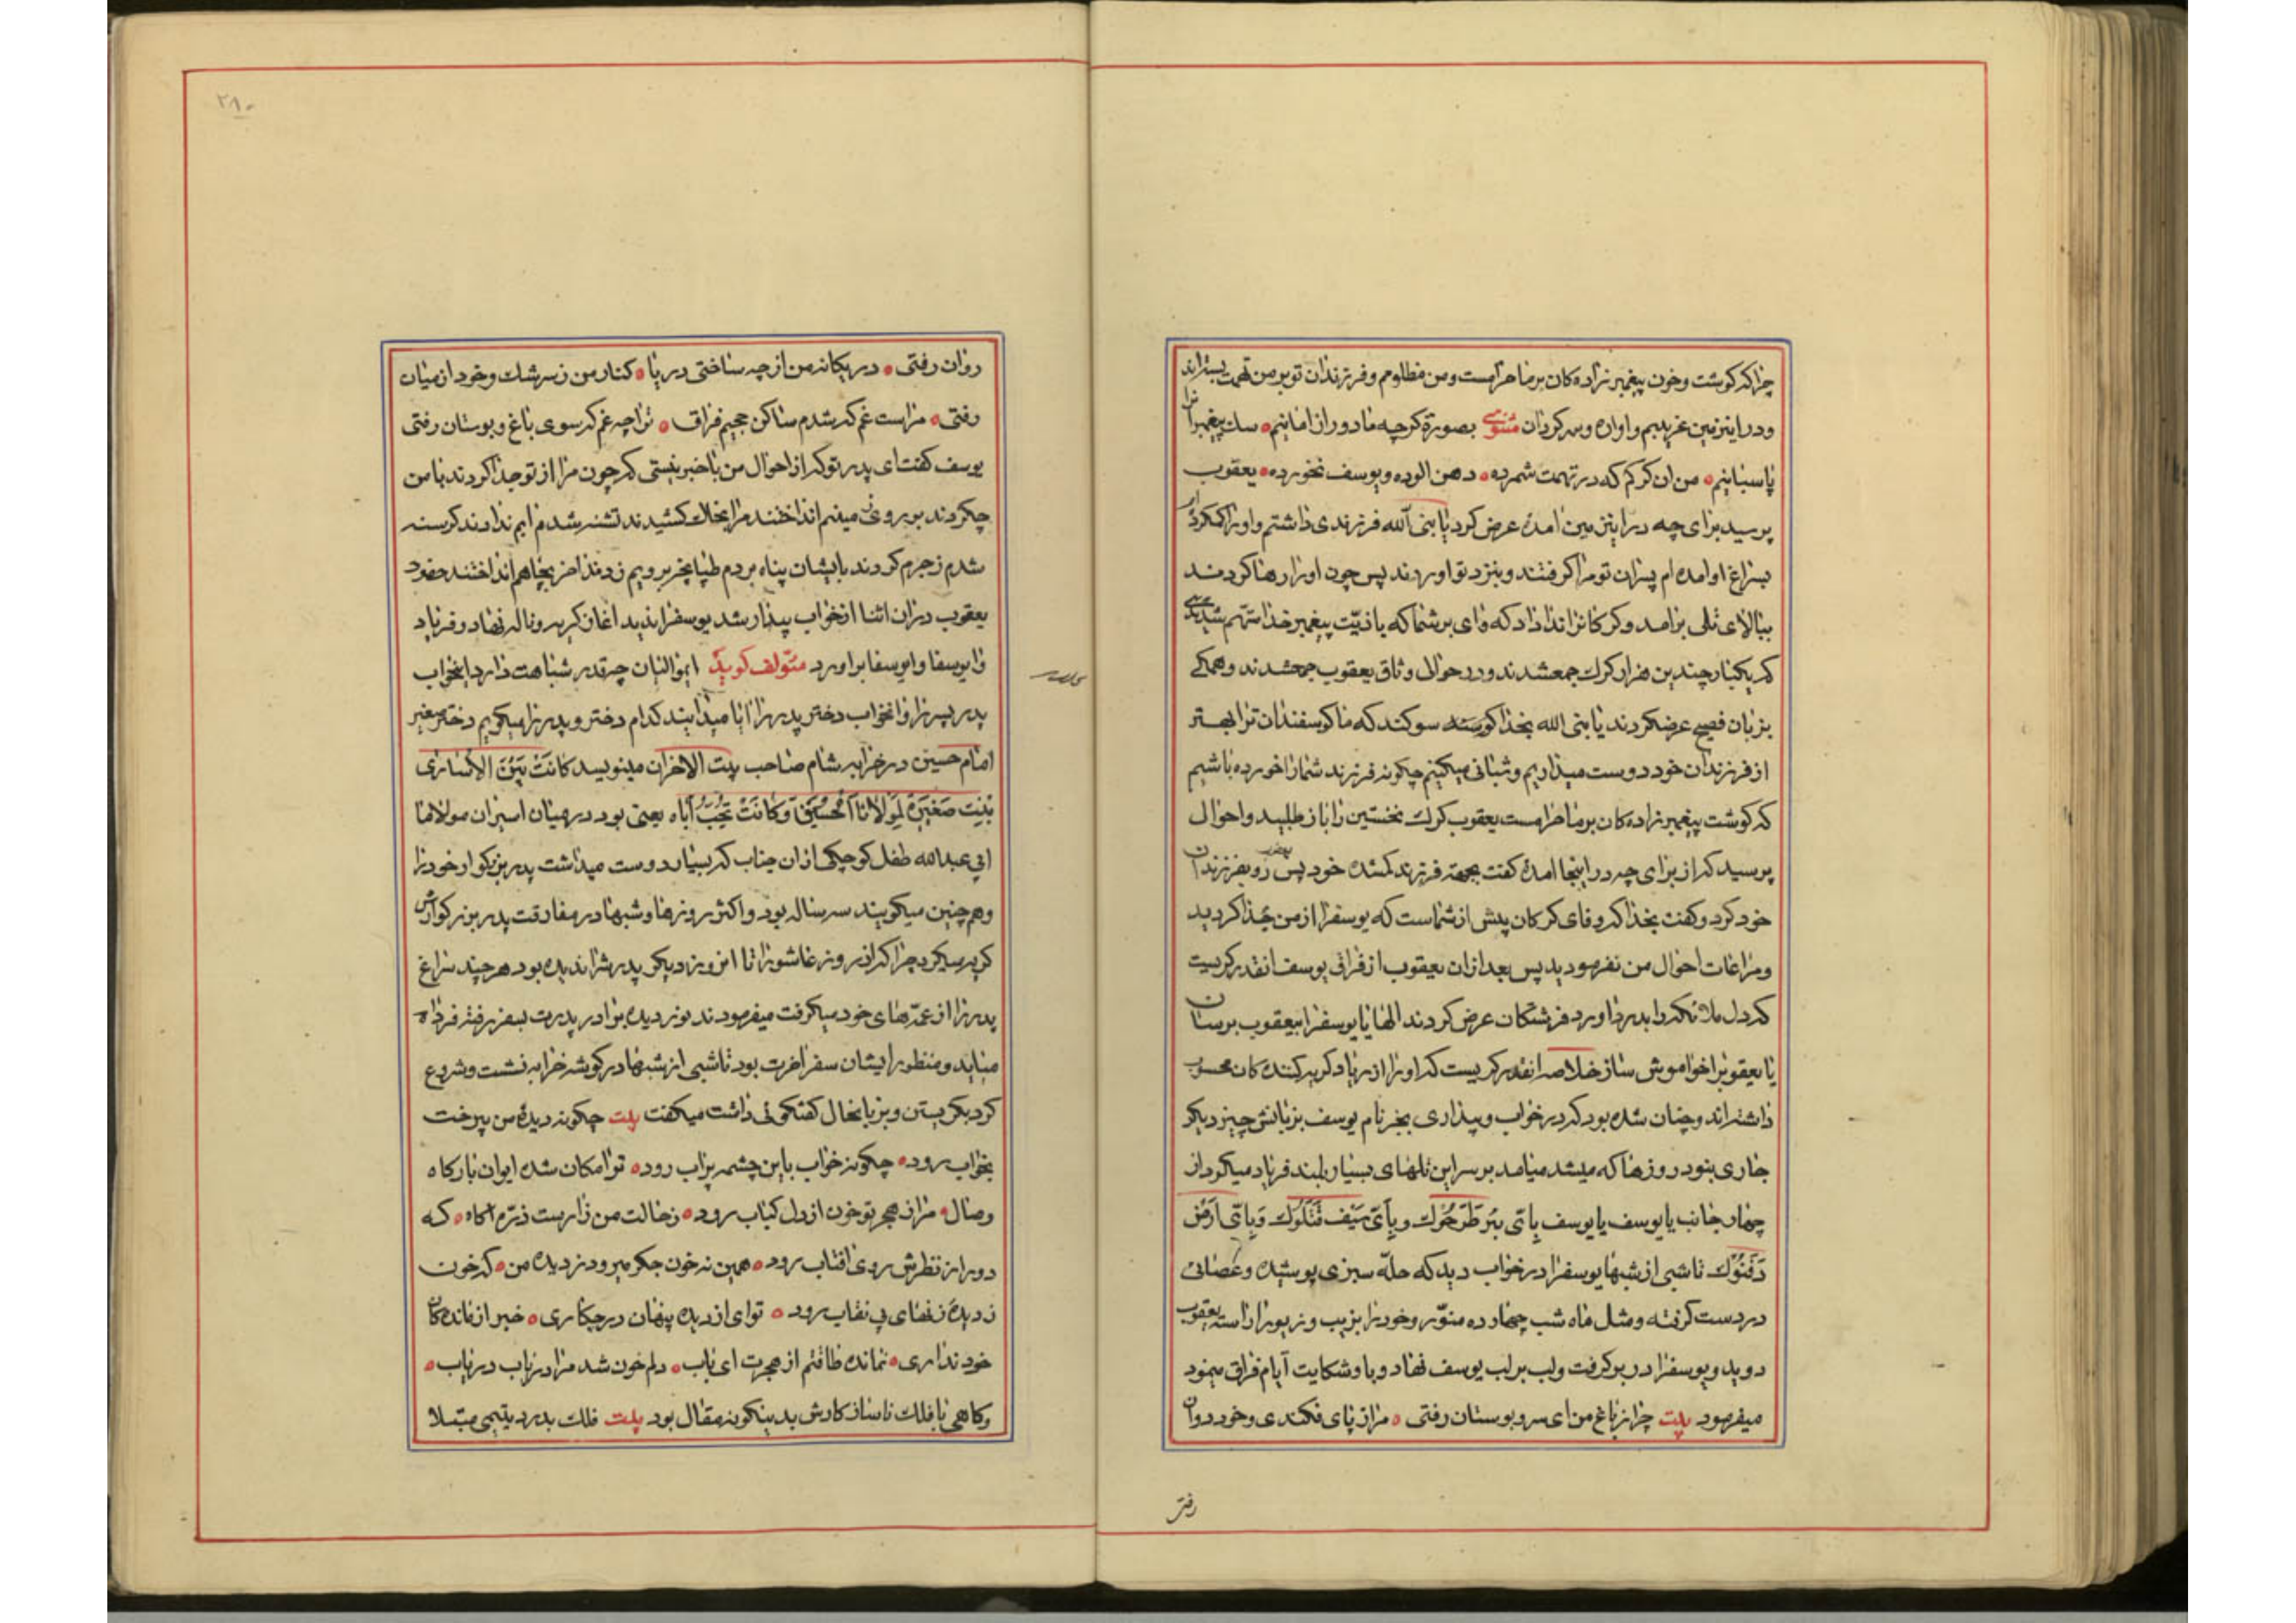 چراکه کوشت وخون پیغمبرزاده کان برما حرامست ومن مظلومم وفرزندان تو برمن تهمت بسته‌اند
ودراینزمین غریبیم واواره وسرکردان مثنوی بصورة کرچه ما دور از امانیم سک پیغمبرانرا
پاسبانیم من ان کرکم که در تهمت شمرده دهن الوده ویوسف نخورده یعقوب
پرسید برای چه دراینزمین امدهٔ عرض کرد یا بنی الله فرزندی داشتم واورا کمکرده‌ام
بسراغ او امده‌ام پسران تو مرا کرفتند وبنزد تو اوردند پس چون اورا رها کردند
ببالای تلی برامد وکرکانرا ندا داد که وای برشما که باذیّت پیغمبر خدا متّهم شدید
که یکبار چندین هزار کرک جمعشدند ودر حوالی وثاق یعقوب جمعشدند وهمکے
بزبان فصیح عرضکردند یا بنی الله بخدا سوکند که ما کوسفندان ترا بهتر
از فرزندان خود دوست میداریم وشبانی میکنیم چکونه فرزند شما را خورده باشیم
که کوشت پیغمبرزاده کان برما حرامست یعقوب کرک نخستین را باز طلبید واحوال
پرسید که از برای چه در اینجا امدهٔ کفت بجهته فرزند کمشده خود پس یعقوب رو بفرزندان
خود کرد وکفت بخدا که وفای کرکان بیش از شماست که یوسفرا از من جدا کردید
ومراعات احوال من نفرمودید پس بعد از ان یعقوب از فراق یوسف انقدر کریست
که دل ملائکه را بدرد اورد فرشتکان عرض کردند الها یا یوسفرا بیعقوب برسان
یا یعقوبرا خواموش ساز خلاصه انقدر کریست که اورا از زیاد کریه کننده کان محسوب
داشته‌اند وچنان شده بود که در خواب وبیداری بجز نام یوسف بزبانش چیز دیکر
جاری نبود روزها که میشد میامد برسر این تلهای بسیار بلند فریاد میکرد از
چهار جانب یا یوسف یا یوسف بِاَیّ بئرٍ طَرَحُوک وبِاَیّ سَیف قَتَلوُک وَبِاَیّ اَرض
دَفَنُوک تا شبی از شبها یوسفرا در خواب دید که حلّه سبزی پوشیده وعصائی
دردست کرفته ومثل ماه شب چهارده منوّر وخودرا بزیب وزیور اراسته یعقوب
دوید ویوسفرا در بر کرفت ولب برلب یوسف نهاد وباو شکایت ایّام فراق مینمود
میفرمود بیت چرا ز باغ من ای سرو بوستان رفتی مرا ز پای فکندی وخود روان
رفتی
۲۸۰
روان رفتی در یکانه من از چه ساختی دریا کنار من ز سرشک وخود از میان
رفتی مراست غم که شدم ساکن جحیم فراق ترا چه غم که سوی باغ وبوستان رفتی
یوسف کفت ای پدر تو که از احوال من باخبر نیستی که چون مرا از تو جدا کردند با من
چکردند بر روی زمینم انداختند مرا بخاک کشیدند تشنه شدم ابم ندادند کرسنه
شدم زجرم کردند بایشان پناه بردم طپانچه بر رویم زدند اخر بچاهم انداختند حضرت
یعقوب در ان اثنا از خواب بیدار شد یوسفرا ندید اغاز کریه وناله نهاد وفریاد
وایوسفا وایوسفا براورد مئولف کوید ایموالیان چقدر شباهت دارد اینخواب
پدر پسر را وانخواب دختر پدر را ایا میدانید کدام دختر وپدر را میکویم دختر صغیر
امام حسین در خرابه شام صاحب بیت الاحزان مینویسد کانَتْ بَیْنَ الاُسَارٰی
بِنْت صَغیرَةٌ لِمَولانا الحُسَین وَکانَتْ تُحِبُّ اَباه یعنی بود در میان اسیران مولانا
ابی عبدالله طفل کوچکی از ان جناب که بسیار دوست میداشت پدر بزرکوار خودرا
وهم چنین میکویند سه ساله بود واکثر روزها وشبها در مفارقت پدر بزرکوارش
کریه میکرد چرا که از روز عاشورا تا انروز دیکر پدرش را ندیده بود هر چند سراغ
پدر را از عمّه‌های خود میکرفت میفرمودند نور دیده برادر پدرت بسفر رفته فردا
میاید ومنظور ایشان سفر اخرت بود تا شبی از شبها در کوشه خرابه نشست وشروع
کرد بکریستن وبزبانحال کفتکوئی داشت میکفت بیت چکونه دیدهٔ من بی رخت
بخواب رود چکونه خواب باین چشم پراب رود ترا مکان شده ایوان بارکاه
وصال مرا ز هجر تو خون از دل کباب رود زحالت من زار ست ذرّه اکاه که
دور از نظرش روی افتاب رود همین نه خون جکر میرود ز دیده من که خون
ز دیدهٔ زنهای بی نقاب رود تو ای از دیده پنهان در چکاری خبر از مانده کان
خود نداری نمانده طاقتم از هجرت ای باب دلم خون شد مرا دریاب دریاب
وکاهی با فلک ناساز کارش بدینکونه مقال بود بیت فلک بدرد یتیمی مبتلا